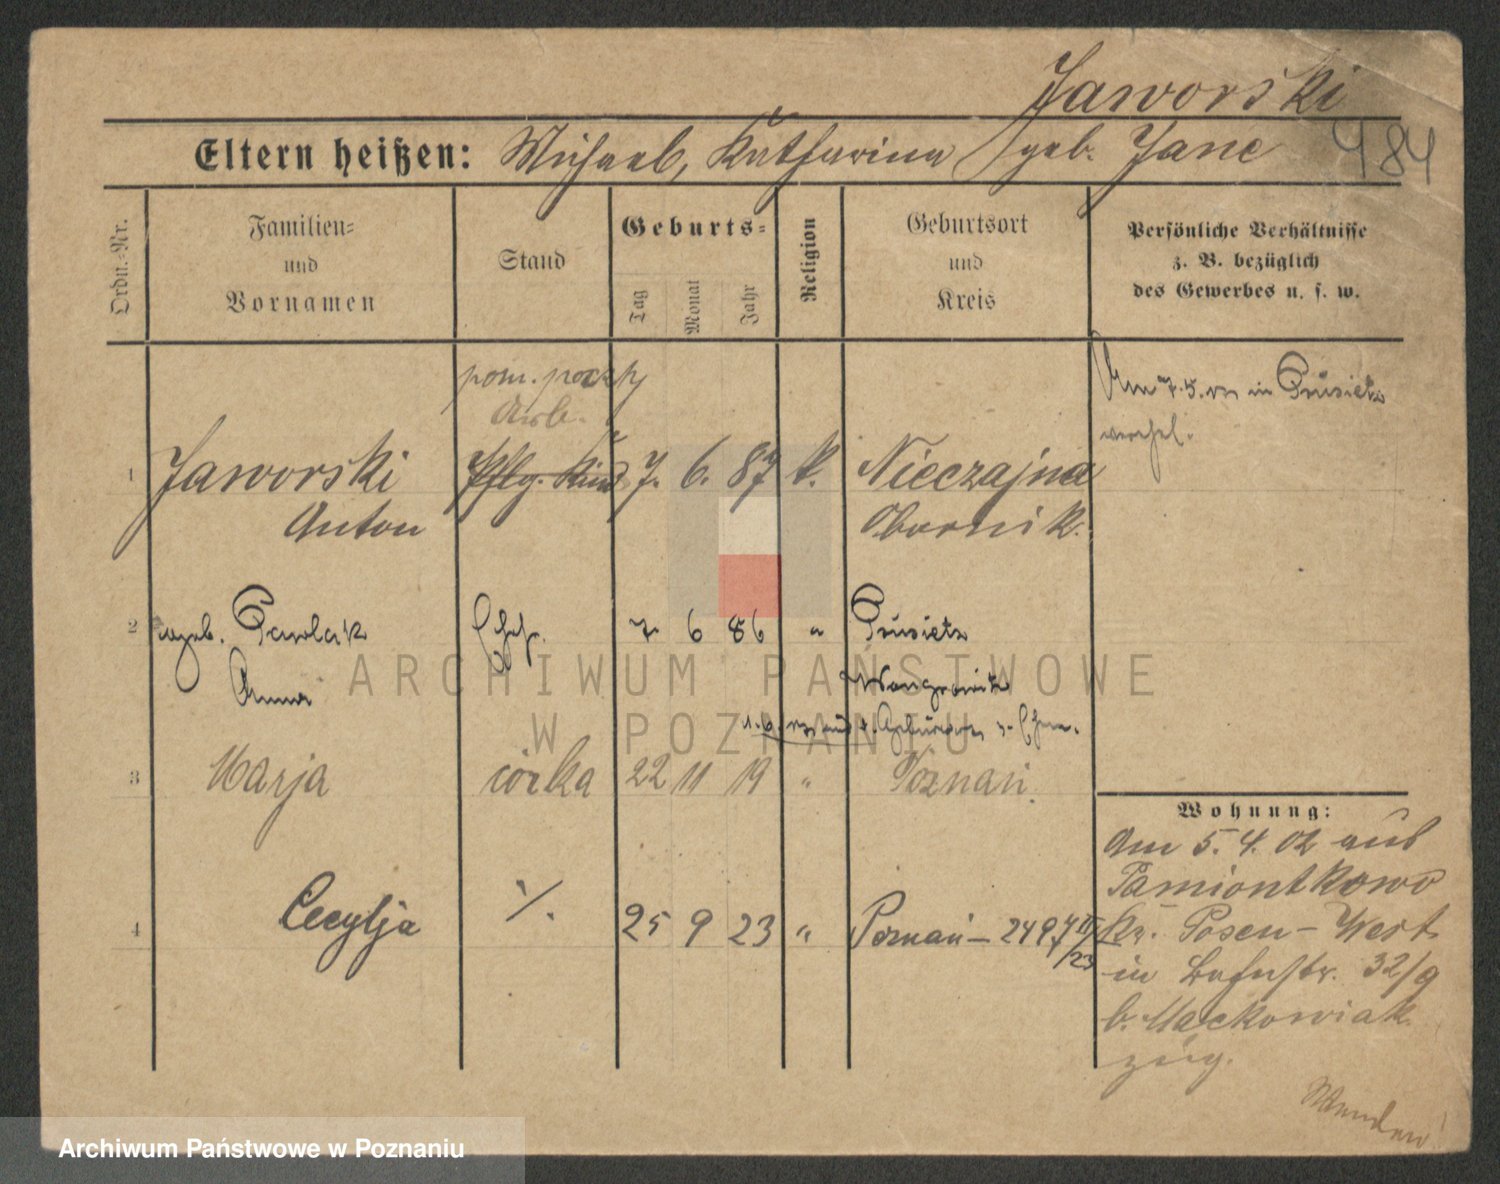 Jaworski
Eltern heißen: Michael, Katharina geb. Jane
484
Ordn.-Nr.
Familien- und Vornamen
Stand
Geburts-
Tag
Monat
Jahr
Religion
Geburtsort und Kreis
Persönliche Verhältnisse z. B. bezüglich des Gewerbes u. s. w.
pom. poczty
Arb.
1 Jaworski Pflg. Kind 7. 6. 87 k. Nieczajna
Anton Obornik.
Am 7.5. in Prusietz
verehel.
2 geb. Pawlak Ehefr. 7. 6 86 " Prusietz
Anna Wongrowitz
3 Marja córka 22 11 19 " Poznań
4 Cecylja ./. 25 9 23 " Poznań – 2497 II/23
Wohnung:
Am 5. 4. 02 aus
Pamiontkowo
Kr. Posen – West
in 32/9
b. Mackowiak
zug.
ARCHIWUM PAŃSTWOWE
W POZNANIU
Archiwum Państwowe w Poznaniu